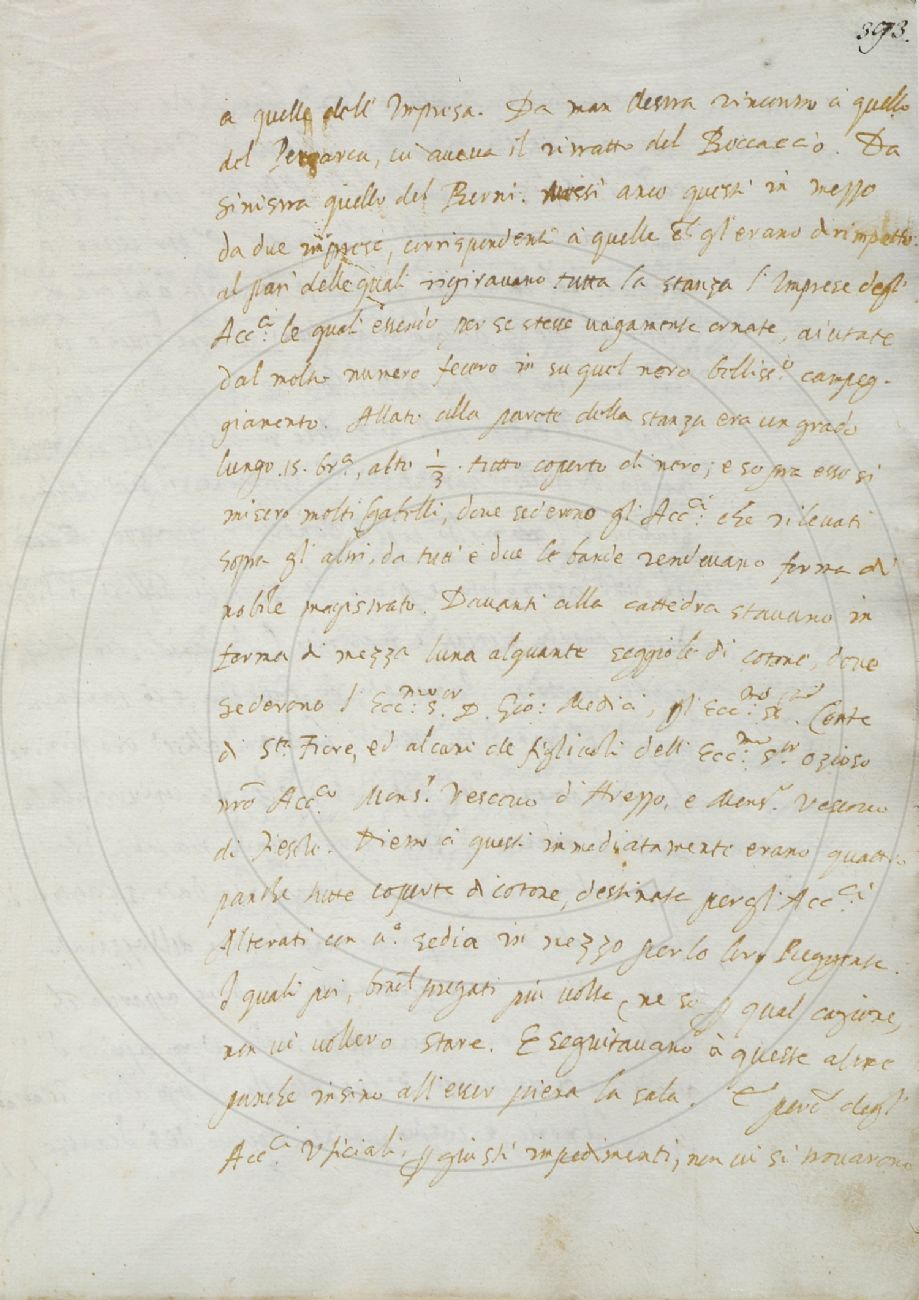 393.
a quelle dell' Impresa. Da man destra rincontro à quello
del Petrarca, vi aveva il ritratto del Boccaccio. Da
sinistra quello del Berni. Messi anco questi in mezzo
da due imprese, corrispondenti à quelle ch' gl'erano dirimpetto.
al pari delle quali rigiravano tutta la stanza l'Imprese degl'
Acc.ci le quali essendo per se stesse vagamente ornate, aiutate
dal molto numero fecero in su quel nero belliss.o campeg-
giamento. Allato alla parete della stanza era un grado
lungo .15. br.a, alto 1/3. tutto coperto di nero; e sopra esso si
misero molti sgabelli, dove sederono gl'Acc.ci che rilevati
sopra gl'altri, da tutt'e due le bande rendevano forma di
nobile magistrato. Davanti alla cattedra stavano in
forma di mezza luna alquante seggiole di cotone, dove
sederono l'Ecc.mo S.or D. Gio: Medici, gl'Ecc.mo Conte
di S.ta Fiore, ed alcuni de figliuoli dell'Ecc.mo S.or Ozioso
nrõ Acc.co Mons.r Vescovo d'Arezzo, e Mons.r Vescovo
di Fiesole. Dietro à questi immediatamente erano quattro
panche tutte coperte di cotone, destinate per gl'Acc.ci
Alterati con u.a sedia in mezzo per lo loro Reggente.
I quali poi, benchè pregati più volte, ne so p qual cagione,
non vi vollero stare. E seguitavano à queste altre
panche insino all'esser piena la sala. E perchè degl'
Acc.ci Vficiali, p giusti impedimenti, non vi si trovarono